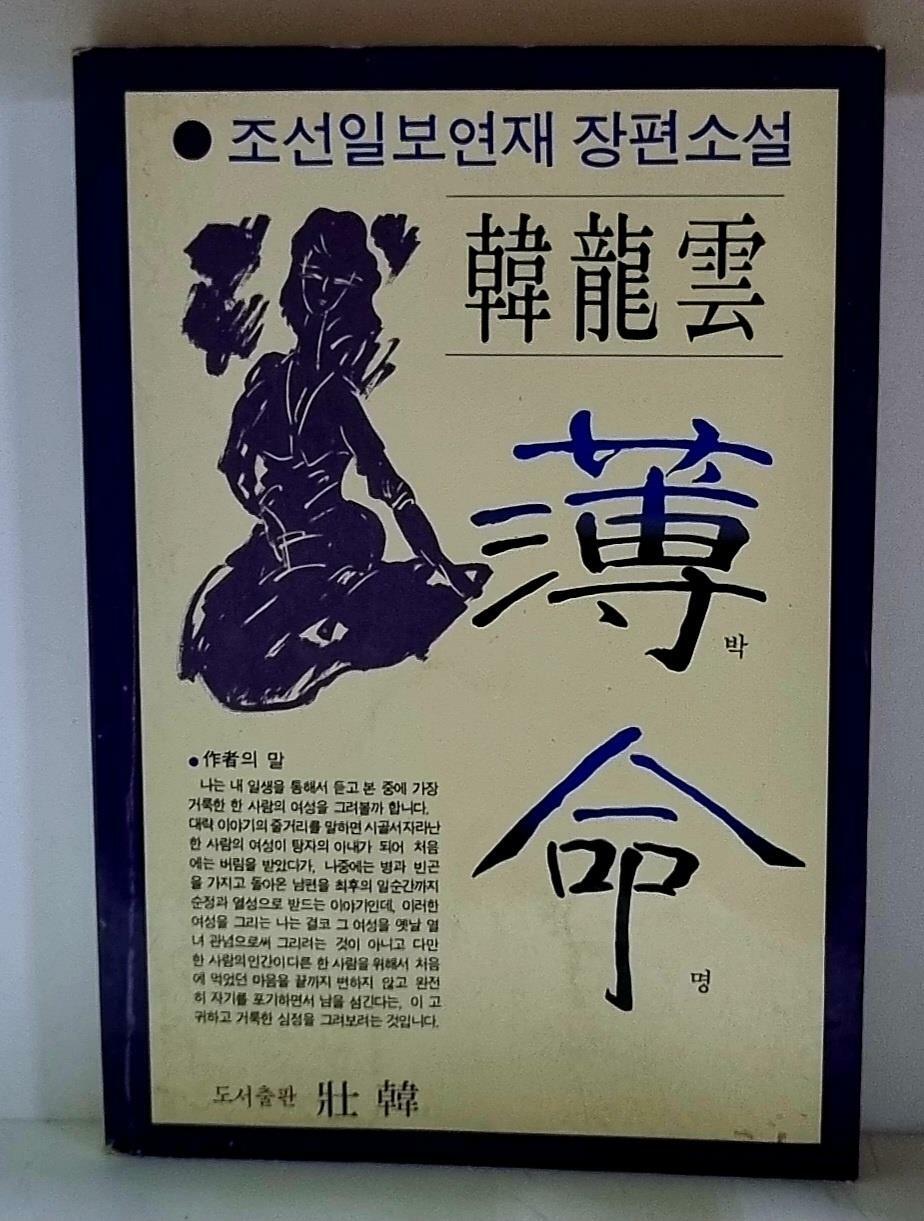 ● 조선일보연재 장편소설
韓龍雲
薄
박
命
명
● 作者의 말
나는 내 일생을 통해서 듣고 본 중에 가장
거룩한 한 사람의 여성을 그려볼까 합니다.
대략 이야기의 줄거리를 말하면 시골서 자라난
한 사람의 여성이 탕자의 아내가 되어 처음
에는 버림을 받았다가, 나중에는 병과 빈곤
을 가지고 돌아온 남편을 최후의 일순간까지
순정과 열성으로 받드는 이야기인데, 이러한
여성을 그리는 나는 결코 그 여성을 옛날 열
녀 관념으로써 그리려는 것이 아니고 다만
한 사람의 인간이 다른 한 사람을 위해서 처음
에 먹었던 마음을 끝까지 변하지 않고 완전
히 자기를 포기하면서 남을 섬긴다는, 이 고
귀하고 거룩한 심정을 그려보려는 것입니다.
도서출판 壯韓